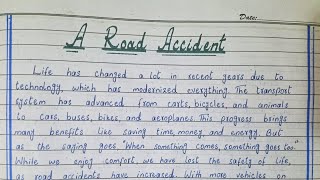 Date:
A Road Accident
Life has changed a lot in recent years due to
technology, which has modernised everything. The transport
system has advanced from carts, bicycles, and animals
to cars, buses, bikes, and aeroplanes. This progress brings
many benefits like saving time, money, and energy. But
as the saying goes. "When something comes, something goes too."
While we enjoy comfort, we have lost the safety of life,
as road accidents have increased. With more vehicles on